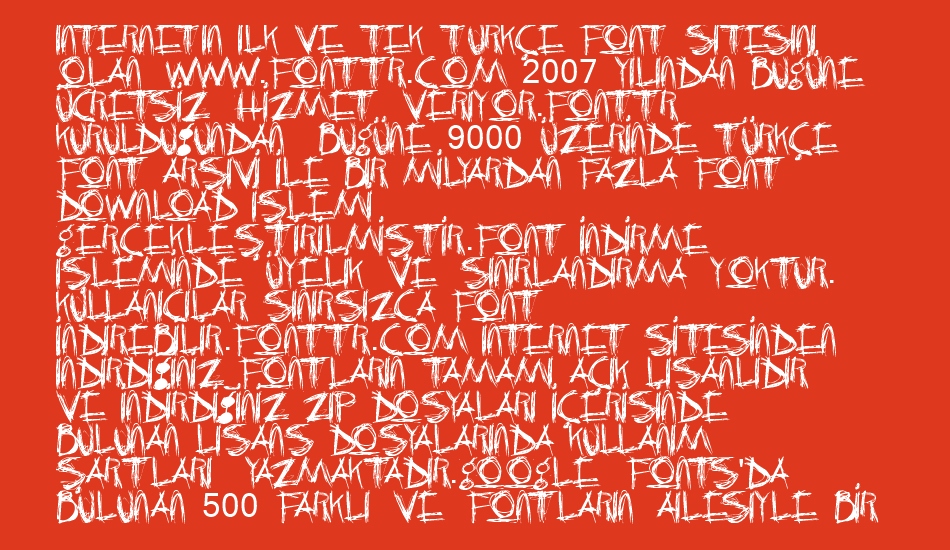 İNTERNETİN İLK VE TEK TÜRKÇE FONT SİTESİNİ
OLAN WWW.FONTTR.COM 2007 YILINDAN BUgÜNE
ÜCRETSİZ HİZMET VERİYOR.FONTTR
KURULDUĞUNDAN BUgÜNE 9000 ÜZERİNDE TÜRKÇE
FONT ARŞİVİ İLE BİR MİLYARDAN FAZLA FONT
DOWNLOAD İŞLEMİ
gERÇEKLEŞTİRİLMİŞTİR.FONT İNDİRME
İŞLEMİNDE ÜYELİK VE SINIRLANDIRMA YOKTUR.
KULLANICILAR SINIRSIZCA FONT
İNDİREBİLİR.FONTTR.COM İNTERNET SİTESİNDEN
İNDİRDİĞİNİZ FONTLARIN TAMAMI AÇIK LİSANLIDIR
VE İNDİRDİĞİNİZ ZIP DOSYALARI İÇERİSİNDE
BULUNAN LİSANS DOSYALARINDA KULLANIM
ŞARTLARI YAZMAKTADIR.gOOgLE FONTS'DA
BULUNAN 500 FARKLI VE FONTLARIN AİLESİYLE BİR